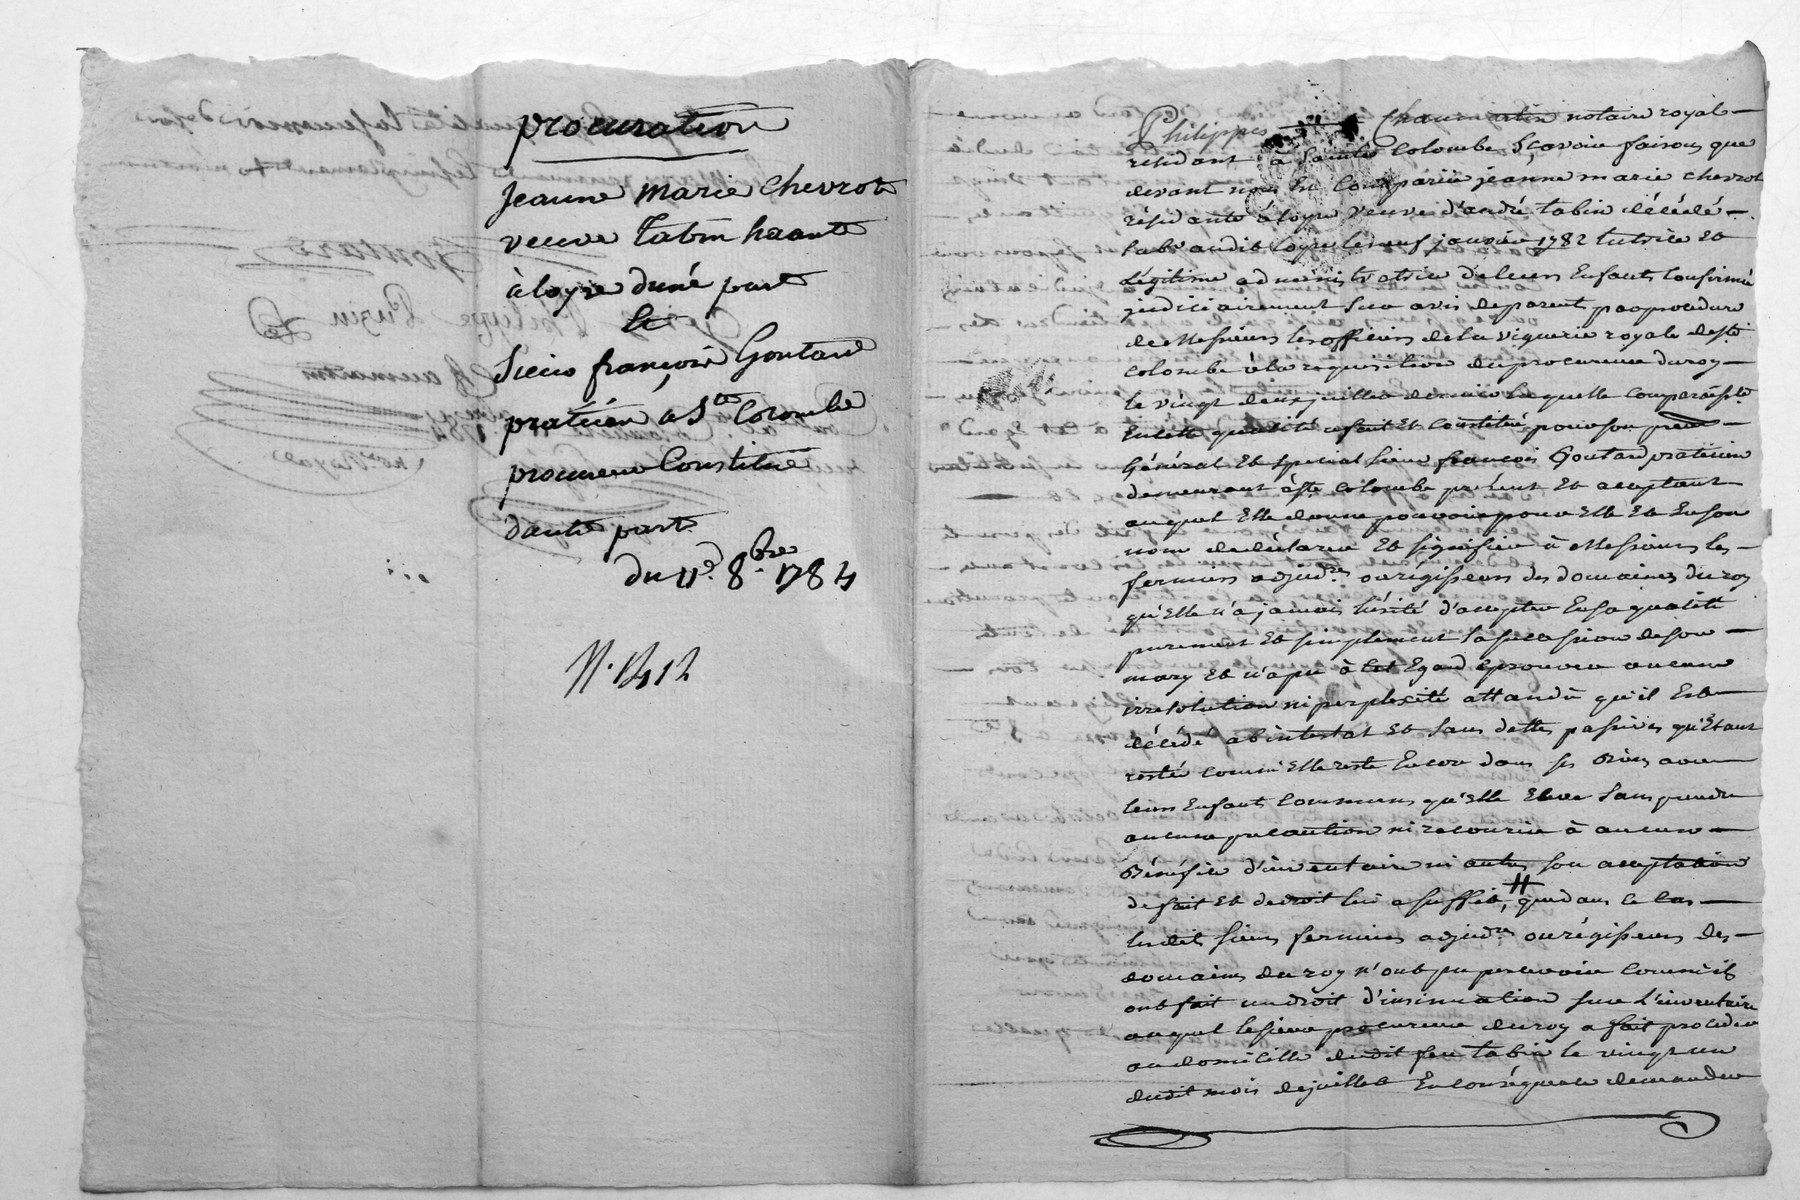 procuration
Jeanne Marie Chevrot
veuve Tabin haante
à loyre duné part
et
Sieur françois Goutard
praticien a Ste Colombe
procureur Constitué
dautre part
du 11e. 8.bre 1784
N. 1412
Philippes Chaumartin notaire royal
résidant à Sainte Colombe Sçavoir faisons que
devant nous Est Comparüe jeanne marie chevrot
résidante à loyre veuve d'andré tabin décédé
ab audit loyre le neuf janvier 1782 tutrice Et
légitime administratrice de leurs Enfants Confirmée
judiciairement Sur avis de parent par procedure
de Messieurs les officiers de la viguerie royale de Ste
colombe à la requisition du procureur du roy
le vingt deux juillet dernier laquelle comparoiste
En cette qualité a fait Et Constitué pour son
Général Et spécial Sieur françois Goutard praticien
demeurant à Ste Colombe présent Et acceptant
auquel Elle donne pouvoir pour Elle Et En son
nom de déclarer Et signifier à Messieurs les
fermiers adjud.res ou régisseurs des domaines du roy
qu'Elle n'a jamais hésité d'accepter En sa qualité
purement Et simplement la succession de son
mary Et n'a pu à cet Egard éprouver aucune
irrésolution ni perplexité attandû qu'il Est
décédé abintestat Et sans dettes passives qu'Etant
restée comm'Elle reste Encor dans ses Biens avec
leurs Enfants communs qu'Elle Eleve sans prendre
aucune precaution ni recourir à aucun
Bénéfice d'inventaire ni autre son acceptation
de fait Et de droit lui a suffit, que dans ce cas
lesdits sieurs fermiers adjud.res ou régisseurs des
domaines du roy n'ont pu percevoir comm'ils
ont fait un droit d'insinuation sur l'inventaire
auquel le sieur procureur du roy a fait proceder
au domicille dudit feu tabin le vingt un
dudit mois de juillet En conséquence demander